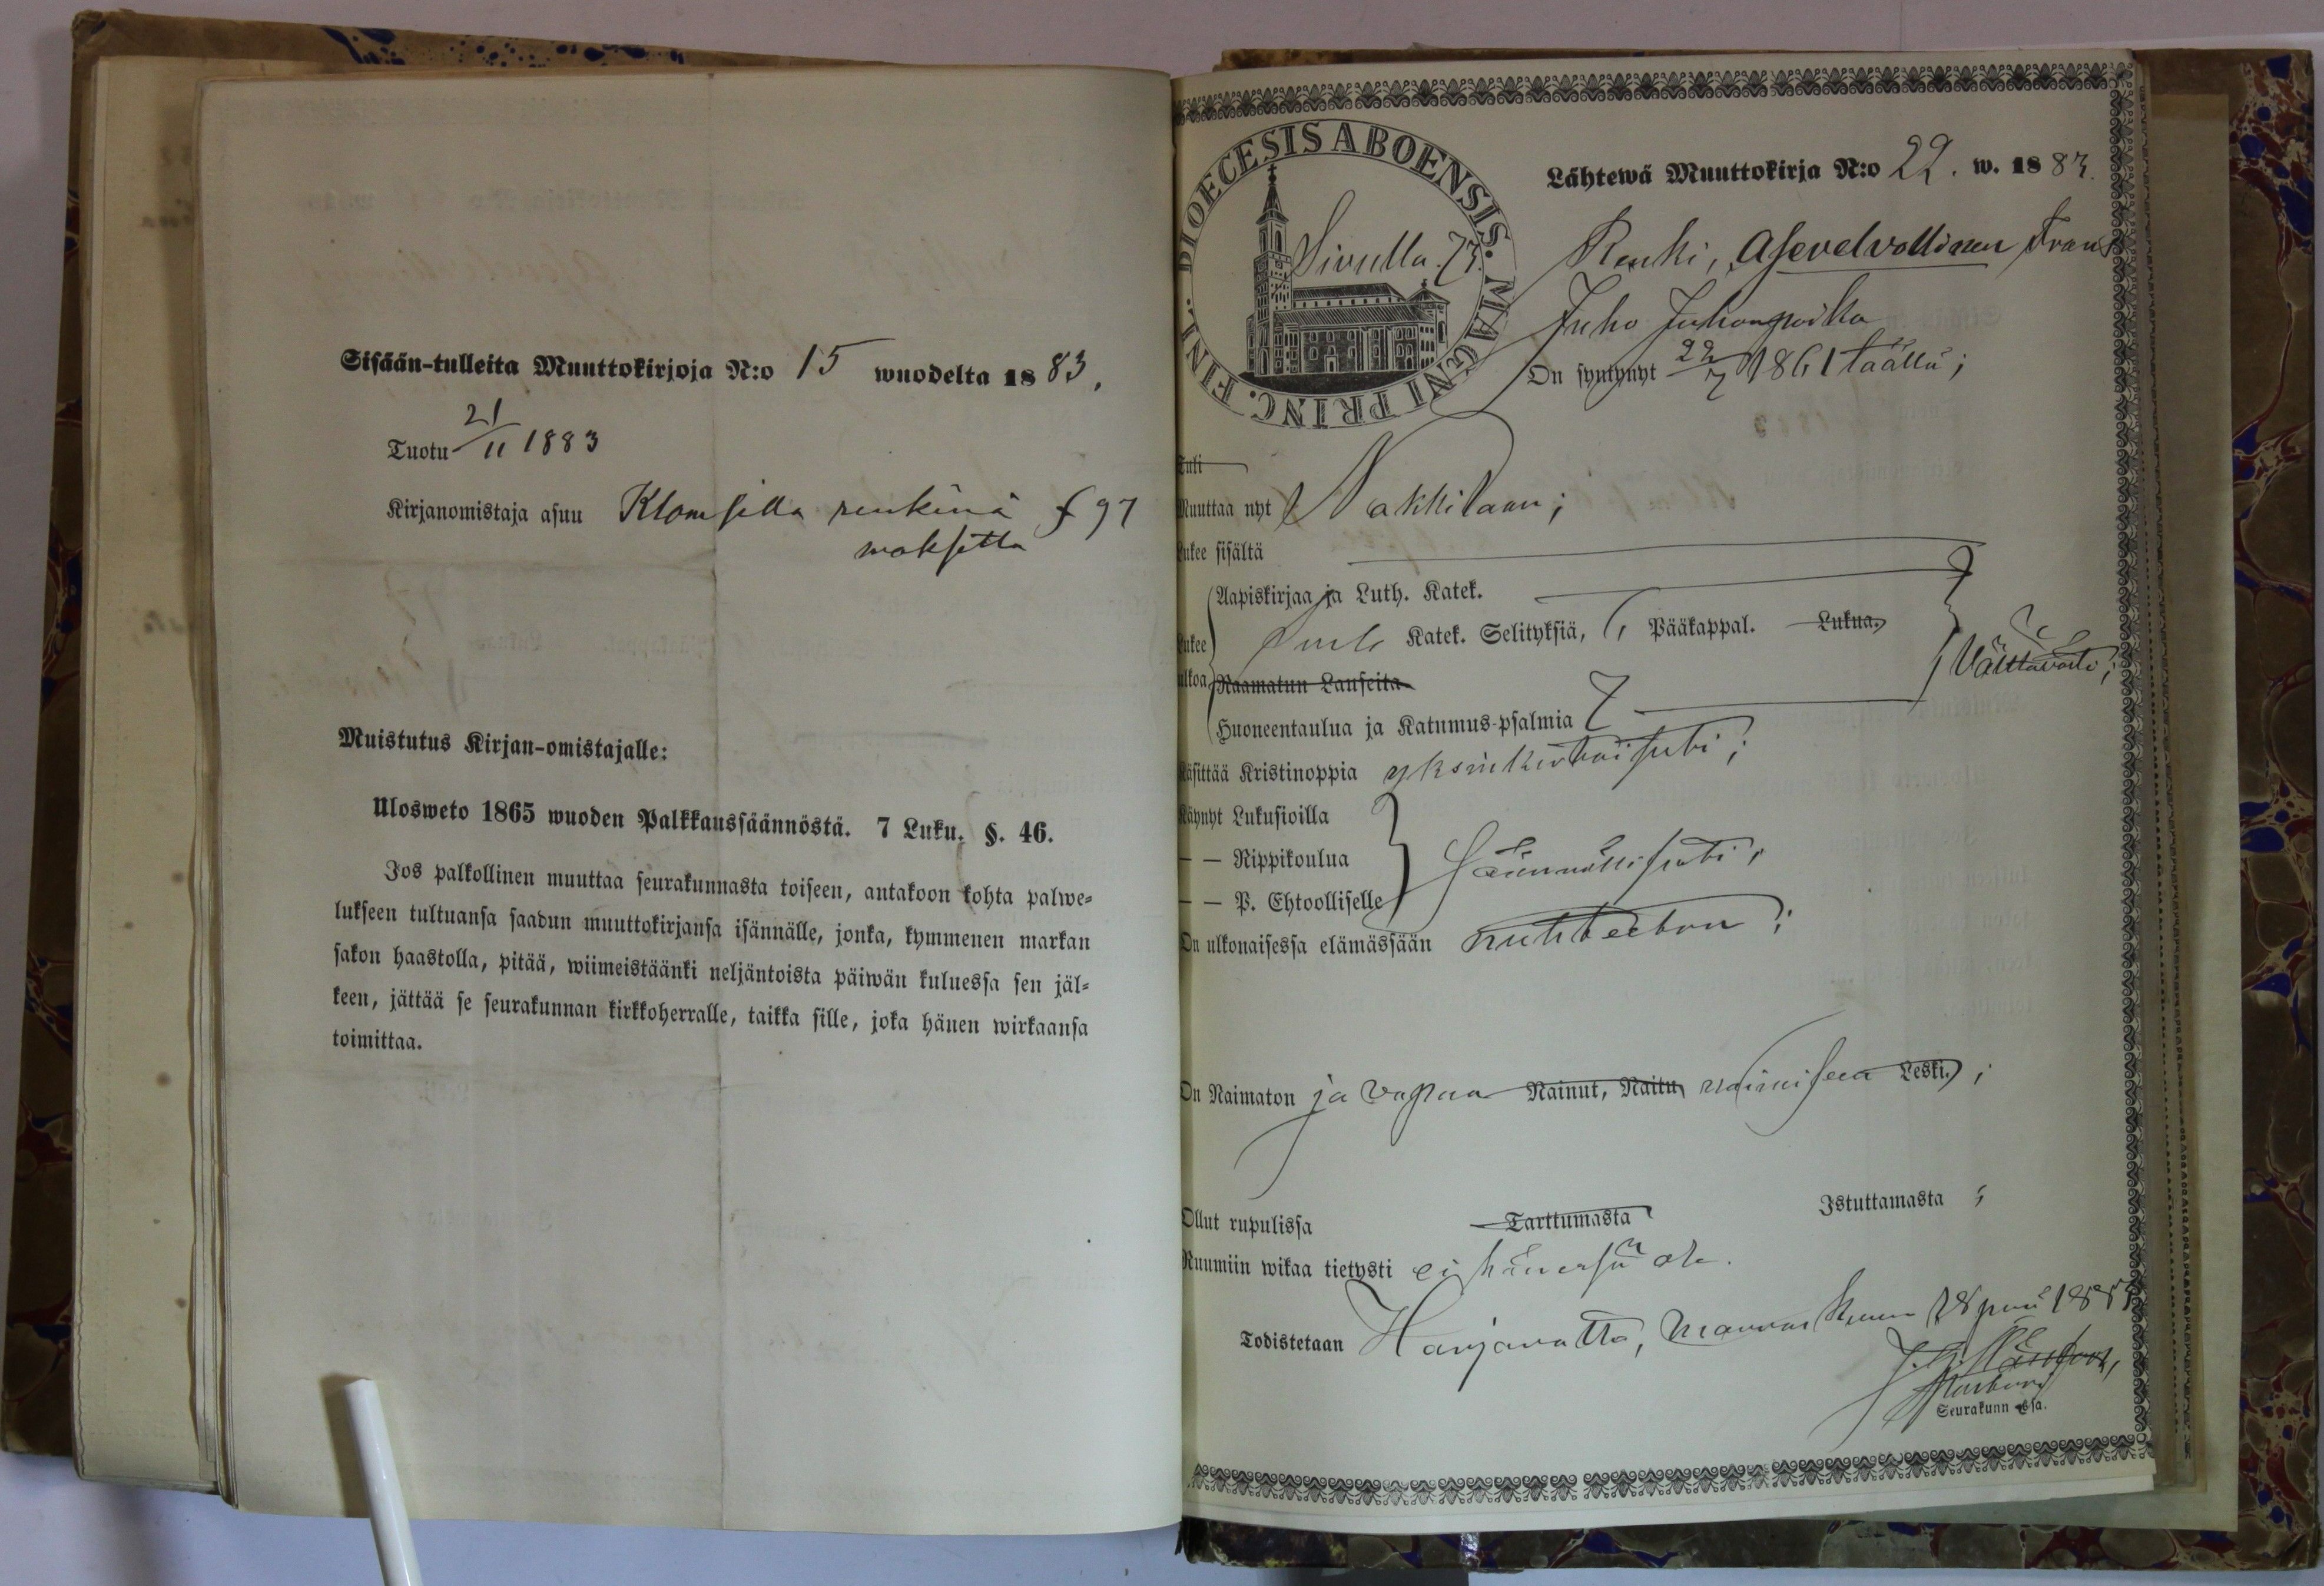 Sisään-tulleita Muuttokirjoja N:o 15 wuodelta 1883.
Tuotu 21/11 1883
Kirjanomistaja asuu renkinä f 97
maksettu
Muistutus Kirjan-omistajalle:
Ulosweto 1865 wuoden Palkkaussäännöstä. 7 Luku. §. 46.
Jos palkollinen muuttaa seurakunnasta toiseen, antakoon kohta palwe-
lukseen tultuansa saadun muuttokirjansa isännälle, jonka, kymmenen markan
sakon haastolla, pitää, wiimeistäänki neljäntoista päiwän kuluessa sen jäl-
keen, jättää se seurakunnan kirkkoherralle, taikka sille, joka hänen wirkaansa
toimittaa.
DIOECESIS ABOENSIS. MAGNI PRINC. FINL.
Sivulla 73.
Lähtewä Muuttokirja N:o 22. w. 1883.
Renki, Asevelvollinen Frans
Juho Juhonpoika
On syntynyt 22/7 1861 täällä;
Tuli
Muuttaa nyt Nakkilaan;
Lukee sisältä
Aapiskirjaa ja Luth. Katek.
Lukee ulkoa
Katek. Selityksiä, Pääkappal. Lukua,
Välttävästi;
Raamatun Lauseita
Huoneentaulua ja Katumus-psalmia 7
Käsittää Kristinoppia yksinkertaisesti;
Käynyt Lukusioilla
— — Rippikoulua Säännöllisesti;
— — P. Ehtoolliselle
On ulkonaisessa elämässään nuhteeton;
On Naimaton ja vapaa Nainut, Naitu, naimiseen Leski.;
Ollut rupulissa Tarttumasta Istuttamasta;
Ruumiin wikaa tietysti ei hänessä ole.
Todistetaan Harjavalta, Marraskuun 18 p:nä 1883
Seurakunnassa.